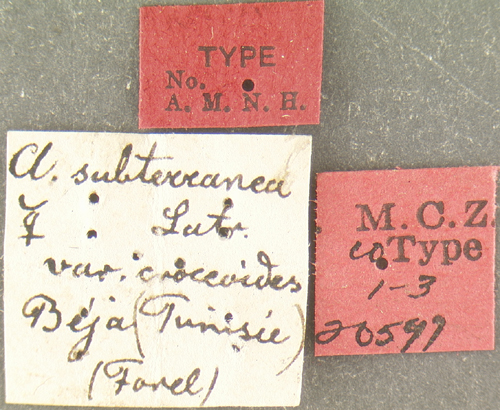 TYPE
No.
A. M. N. H.
A. subterranea
☿ Latr.
var. croceoides
Béja (Tunisie)
(Forel)
M.C.Z.
coType
1-3
20597